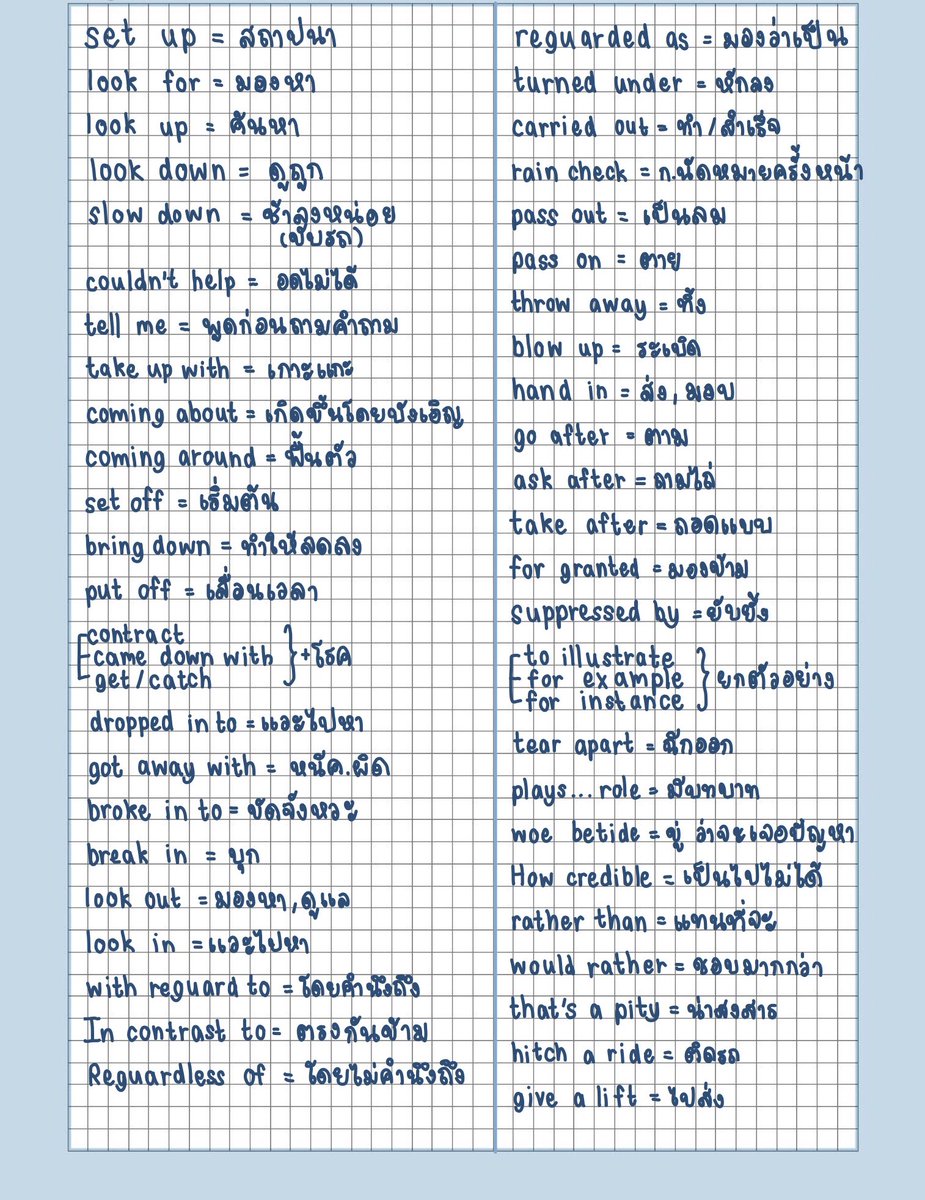 set up = สถาปนา
look for = มองหา
look up = ค้นหา
look down = ดูถูก
slow down = ช้าลงหน่อย
(ขับรถ)
couldn't help = อดไม่ได้
tell me = พูดก่อนถามคำถาม
take up with = เกาะแกะ
coming about = เกิดขึ้นโดยบังเอิญ
coming around = ฟื้นตัว
set off = เริ่มต้น
bring down = ทำให้ลดลง
put off = เลื่อนเวลา
contract
came down with } + โรค
get/catch
dropped in to = แวะไปหา
got away with = หนีค.ผิด
broke in to = ขัดจังหวะ
break in = บุก
look out = มองหา, ดูแล
look in = แวะไปหา
with reguard to = โดยคำนึงถึง
In contrast to = ตรงกันข้าม
Reguardless of = โดยไม่คำนึงถึง
reguarded as = มองว่าเป็น
turned under = หักลง
carried out = ทำ/สำเร็จ
rain check = ก.นัดหมายครั้งหน้า
pass out = เป็นลม
pass on = ตาย
throw away = ทิ้ง
blow up = ระเบิด
hand in = ส่ง, มอบ
go after = ตาม
ask after = ถามไถ่
take after = ถอดแบบ
for granted = มองข้าม
suppressed by = ยับยั้ง
to illustrate
for example } ยกตัวอย่าง
for instance
tear apart = ฉีกออก
plays... role = มีบทบาท
woe betide = ขู่ ว่าจะเจอปัญหา
How credible = เป็นไปไม่ได้
rather than = แทนที่จะ
would rather = ชอบมากกว่า
that's a pity = น่าสงสาร
hitch a ride = ติดรถ
give a lift = ไปส่ง